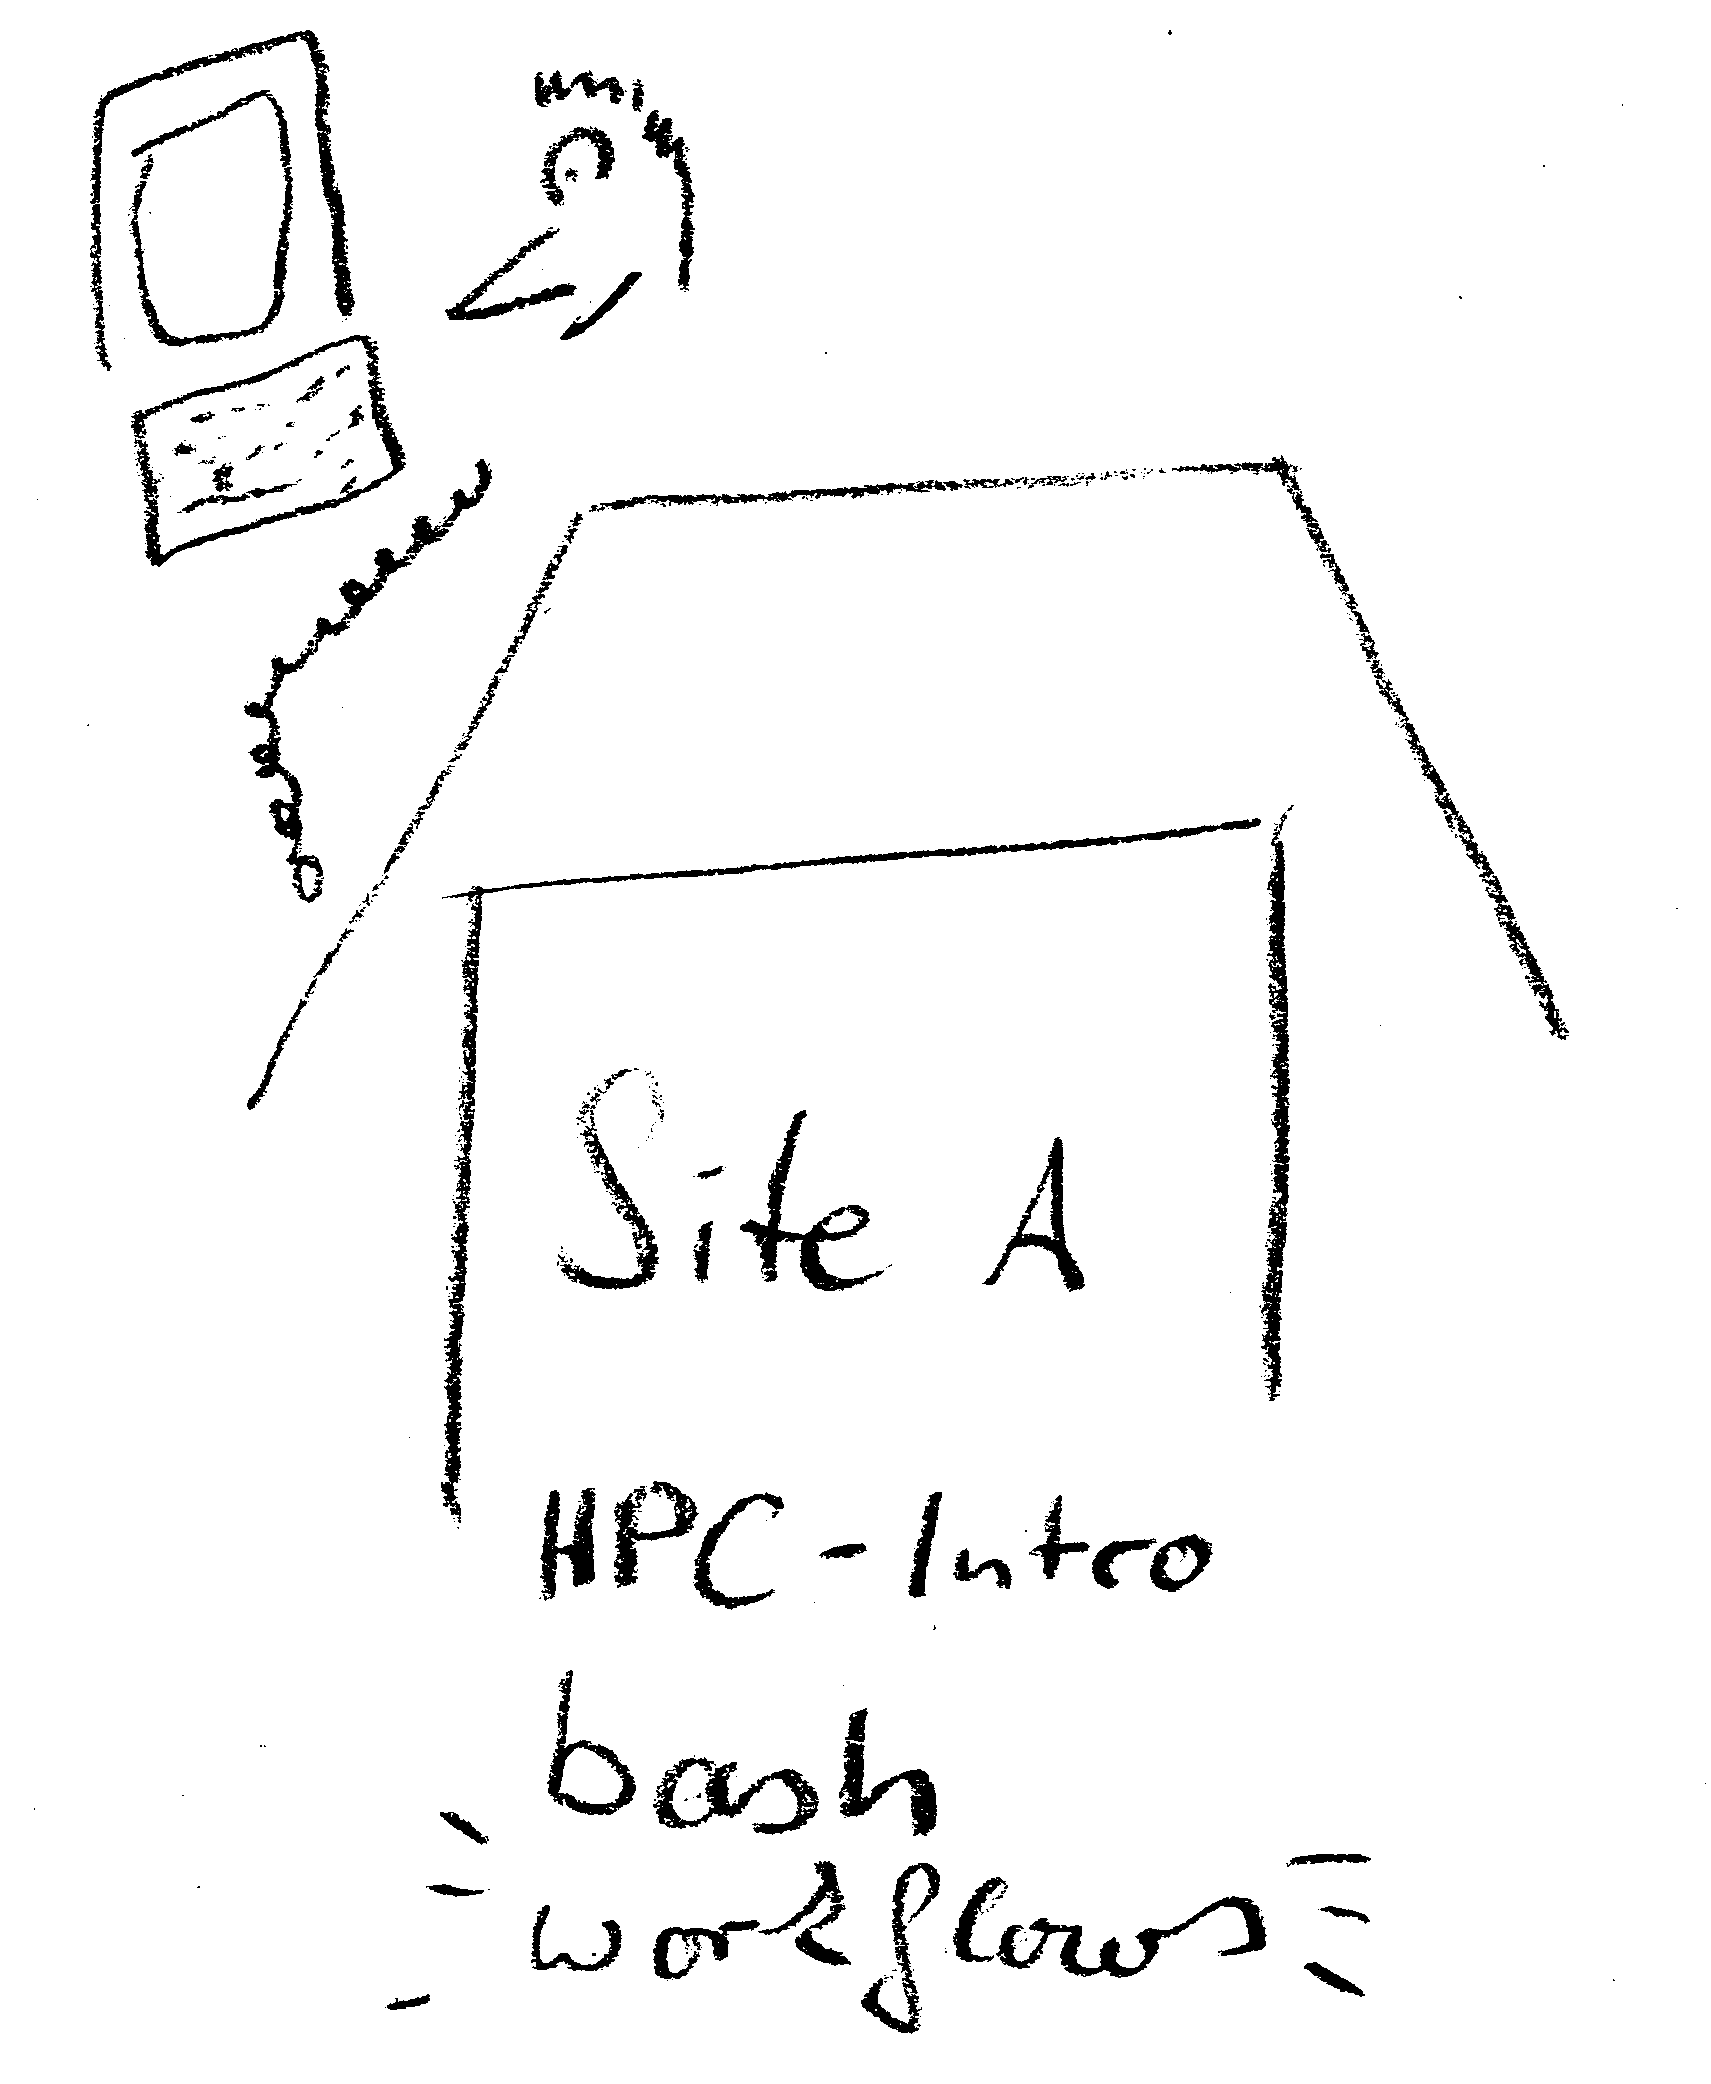 Site A
HPC-Intro
bash
workflows